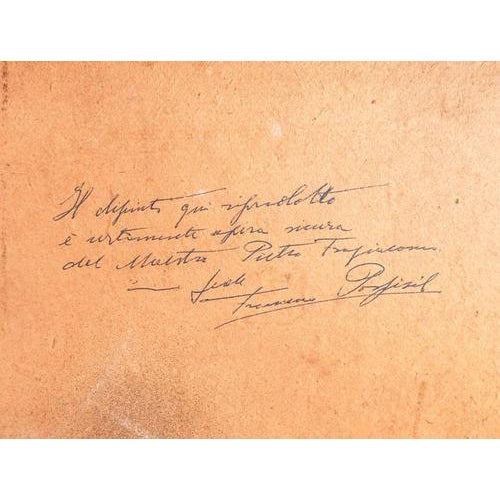 Il dipinto qui riprodotto
è certamente opera sicura
del Maestro Pietro Fragiacomo
in fede
Francesco